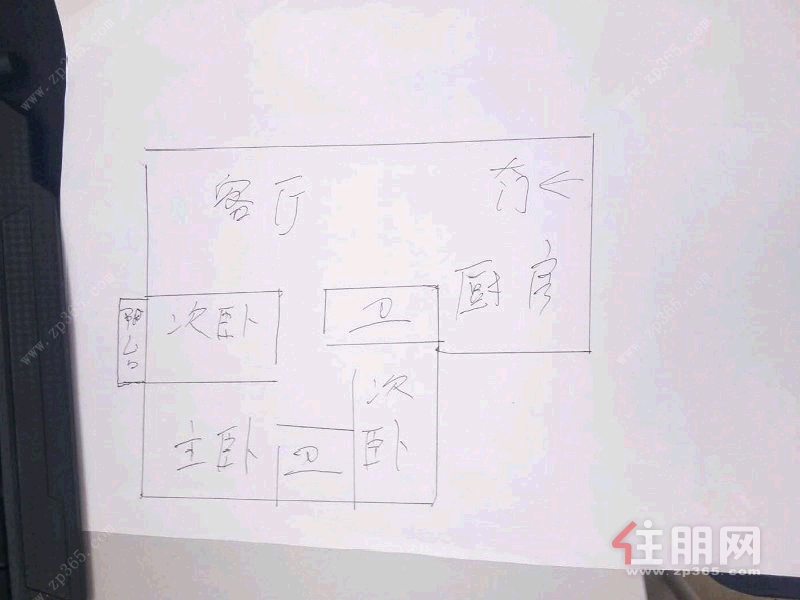 客厅
门
厨房
次卧
卫
阳台
次卧
主卧
卫
住朋网
www.zp365.com